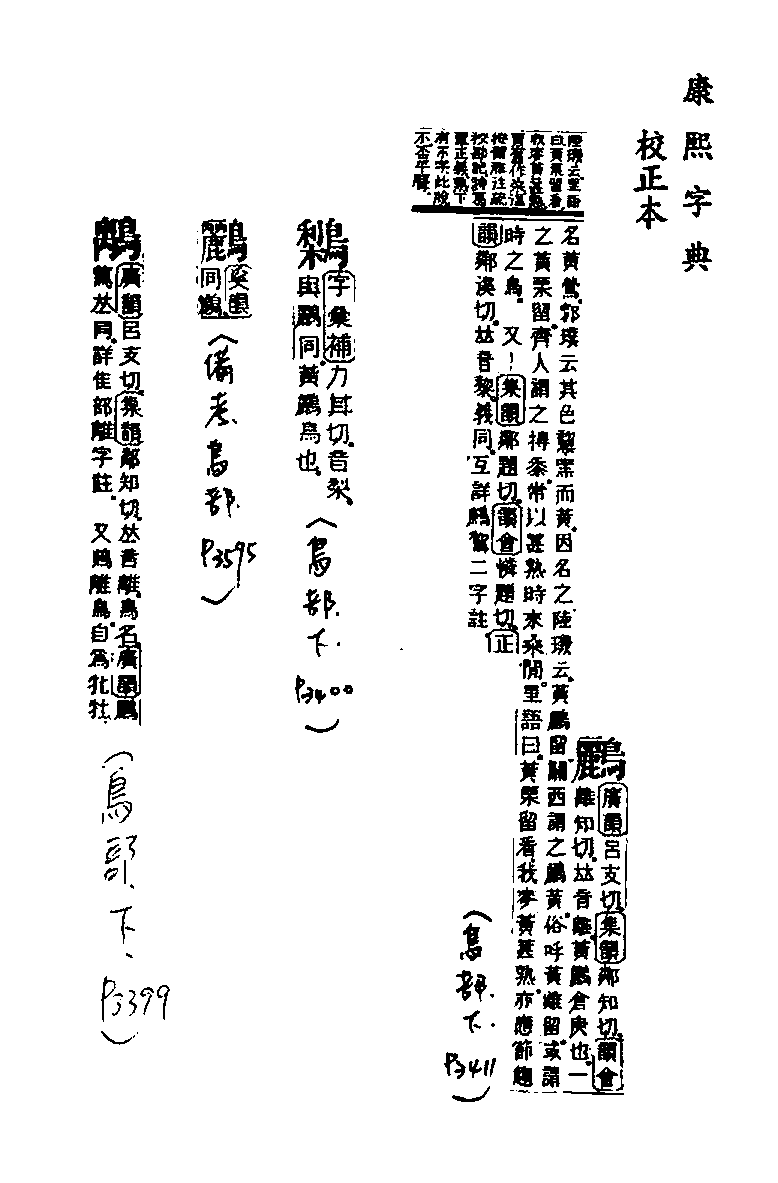 康熙字典
校正本
陸璣云里語
曰黃栗留看
我麥黃葚熟
按爾雅注疏
校勘記詩葛
覃正義熟下
有不字此脫
不否平聲
鸝
廣韻呂支切集韻鄰知切韻會
離知切𠀤音離黃鸝倉庚也一
名黃鶯郭璞云其色黧黑而黃因名之陸璣云黃鸝留關西謂之鸝黃俗呼黃離留或謂
之黃栗留齊人謂之摶黍常以葚熟時來桑閒里語曰黃栗留看我麥黃葚熟亦應節趨
時之鳥。又｜集韻鄰題切韻會憐題切正
韻鄰溪切𠀤音黎義同互詳二字註
(鳥部.下.P3411)
字彙補力其切音梨
與鸝同黃鸝鳥也
(鳥部.下.P3400)
同
(備考鳥部P3595)
廣韻呂支切集韻鄰知切𠀤音離鳥名廣韻鸝
𠀤同詳隹部離字註 又離鳥自爲牝牡
(鳥部.下.P3399)